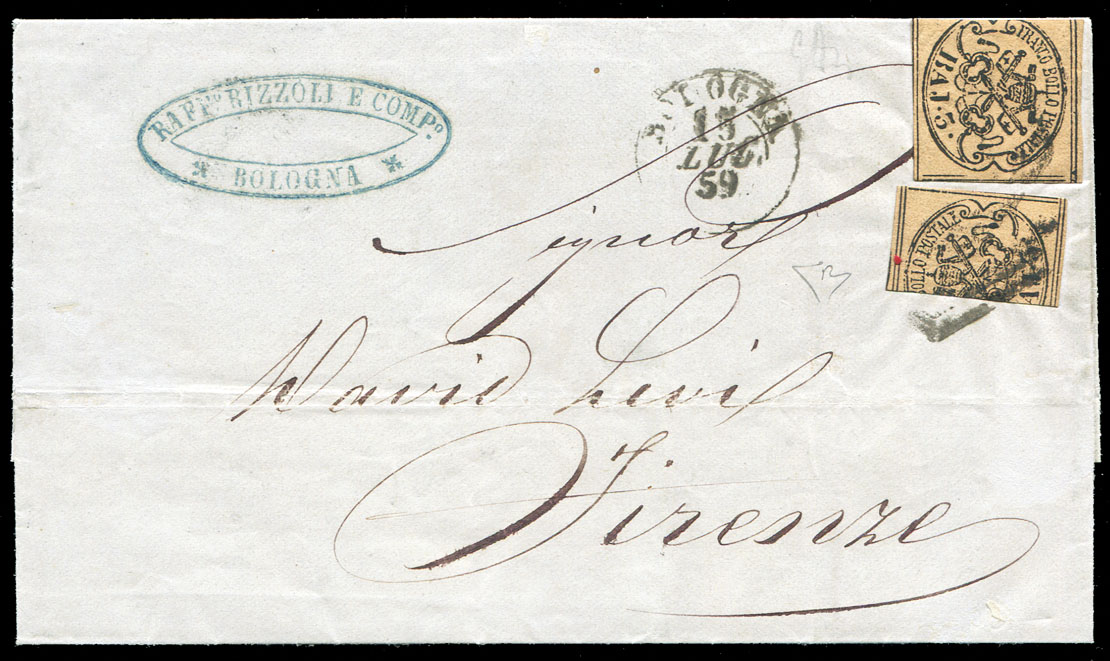 RAFFⁿᵒ RIZZOLI E COMPº
BOLOGNA
BOLOGNA
15
LUG.
59
FRANCO BOLLO POSTALE
BAJ: 5.
BOLLO POSTALE
Signor
David Levi
Firenze